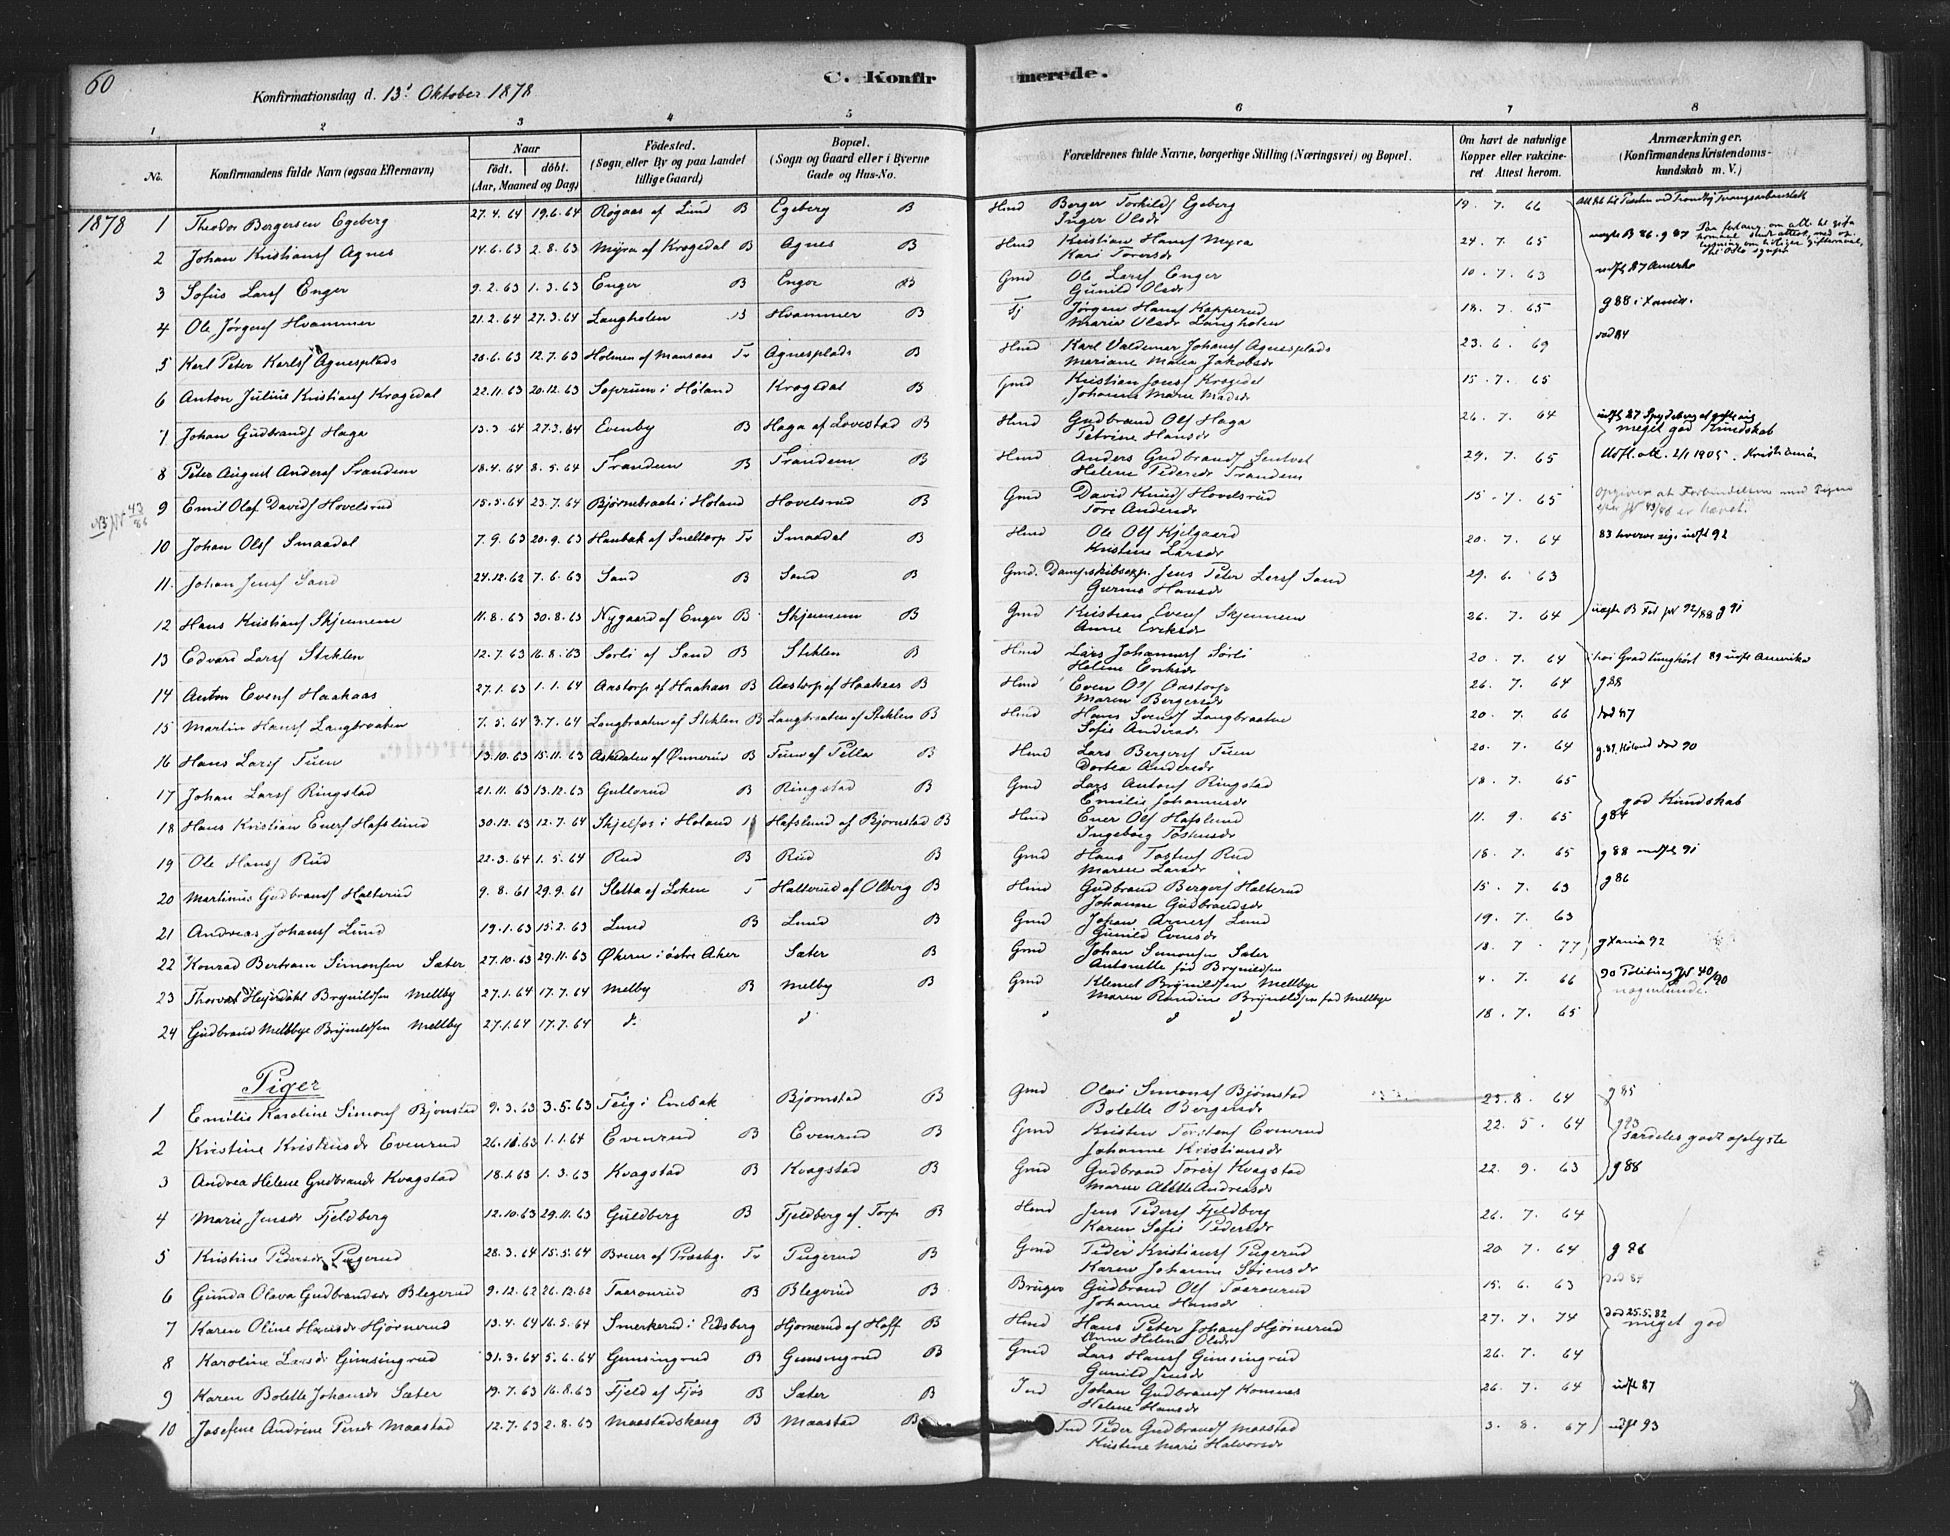 60
C. Konfirmerede.
Konfirmationsdag d. 13' Oktober 1878
1 2 3 4 5 6 7 8
No. Konfirmandens fulde Navn (ogsaa Efternavn) Naar født. døbt. (Aar, Maaned og Dag) Fødested. (Sogn eller By og paa Landet tillige Gaard) Bopæl. (Sogn og Gaard eller i Byerne Gade og Hus-No. Forældrenes fulde Navne, borgerlige Stilling (Næringsvei) og Bopæl. Om havt de naturlige Kopper eller vakcineret Attest herom. Anmærkninger. (Konfirmandens Kristendomskundskab m. V.)
1878 1 Theodor Bergersen Egeberg 27.4.64 19.6.64 Røgaas af Lund B Egeberg B Hmd Berger Torkilds Egeberg 19.7.66
Inger Olsdr
2 Johan Kristians Agnes 14.6.63 2.8.63 Myra af Krogedal B Agnes B Hmd Kristian Hans Myra 24.7.65
Kari Torersdr
3 Sofus Lars Enger 9.2.63 1.3.63 Enger B Enger B Gmd Ole Lars Enger 10.7.63 udfl 87 Amerka
Gunild Olsdr
4 Ole Jørgens Hvammer 21.2.64 27.3.64 Langholen B Hvammer B Tj Jørgen Hans Kapperud 18.7.65 g 88 i Xania.
Maria Olsdr Langholen
5 Karl Peter Karls Agnesplads 20.6.63 12.7.63 Holmen af Monsaas Tr Agnesplads B Hmd Karl Valdemar Johans Agnesplads 23.6.69 død 84
Mariane Maria Jakobsdr
6 Anton Julius Kristians Krogedal 22.11.63 20.12.63 Soprum i Høland Krogedal B Gmd Kristian Jons Krogedal 15.7.65
Johanne Marie Madsdr
7 Johan Gudbrands Haga 13.3 64 27.3.64 Evenby B Haga af Lovestad B Hmd Gudbrand Ols Haga 26.7.64
Petrine Hansdr meget god Kundskab
8 Peter August Anders Trandem 18.4.64 8.5.64 Trandem B Trandem B Hmd Anders Gudbrands 29.7.65 Udfl. att. 2/1 1905. Kristiania
Helene Pedersdr Trandem
9 Emil Olaf Davids Hovelsrud 15.5.64 23.7.64 Bjørnebraate i Høland Hovelsrud B Gmd David Knuds Hovelsrud 15.7.65 Opgiver at Forbindelsen med Pigen
Tore Andersdr
10 Johan Ols Smaadal 7.9.63 20.9.63 Haubak af Sneltorp Tr Smaadal B Hmd Ole Ols Kjelgaard 20.7.64
Kristine Larsdr
11. Johan Jens Sand 24.12.62 7.6.63 Sand B Sand B Gmd. Dampskibsexp. Jens Peter Lars Sand 29.6.63
Hansdr
12 Hans Kristians Skjennem 11.8.63 30.8.63 Nygaard af Enger B Skjennem B Gmd Kristian Evens Skjennem 26.7.64
Anne Eriksdr
13 Edvard Lars Stiklen 12.7.63 16.8.63 Sørli af Sand B Stiklen B Hmd Lars Johannes Sørli 20.7.64 89 udfl Amerika
Helene Eriksdr
14 Anton Evens Haakaas 27.1.63 1.1.64 Aastorp af Haakaas B Aastorp af Haakaas B Hmd Even Ols Aastorp 26.7.64 g88
Maren Bergersdr
15 Martin Hans Langbraaten 7.5.64 3.7.64 Langbraaten af Stiklen B Langbraaten af Stiklen B Hmd Hans Svends Langbraaten 20.7.66 død 87
Sofie Andersdr
16 Hans Lars Tuen 13.10.63 15.11.63 Askedalen af Ønnerud B Tuen af Tella B Hmd Lars Bergers Tuen 20.7.64
Dortea Andersdr
17 Johan Lars Ringstad 21.11.63 13.12.63 Gullerud B Ringstad B Gmd Lars Antons Ringstad 18.7.65
Emilie Johannesdr god Kundskab
18 Hans Kristian Eners Hafslund 30.12.63 12.7.64 Skjelfos i Høland Hafslund af Bjørnstad B Hmd Ener Ols Hafslund 11.9.65 g84
Ingeborg Tostensdr
19 Ole Hans Rud 22.3.64 1.5.64 Rud B Rud B Gmd Hans Tostens Rud 18.7.65 g 88 udfl 91
Maren Larsdr
20 Martinus Gudbrands Halterud 9.8.61 29.9.61 Sletta af Løken T Halterud af Olberg B Hmd Gudbrand Bergers Halterud 15.7.63 g86
Johanne Gudbrandsdr
21 Andreas Johans Lund 19.1.63 15.2.63 Lund B Lund B Gmd Johan Arnes Lund 19.7.63
Gunild Evensdr
22 Konrad Bertram Simonsen Sæter 27.10.63 29.11.63 Økern i østre Aker Sæter B Gmd Johan Simonsen Sæter 18.7.77 g Xania 92
Antonette fød Brynildsen
23 Thorvald Heyerdahl Brynildsen Mellby 27.1.64 17.7.64 Melby B Melby B Gmd Klemet Brynildsen Mellbye 4.7.66
Maren Randine Brynildsen fød Mellbye nogenlunde.
24 Gudbrand Mellbye Brynildsen Mellby 27.1.64 17.7.64 d d d d 18.7.65
Piger
1 Emilie Karoline Simons Bjønstad 9.3.63 3.5.63 Teig i Enebak Bjørnstad B Gmd Olai Simons Bjørnstad 23.8.64 g85
Bolette Bergersdr
2 Kristine Kristiansdr Evenrud 26.11.63 1.1.64 Evenrud B Evenrud B Gmd Kristen Torstens Evenrud 22.5.64 g93
Johanne Kristiansdr særdeles godt oplyste
3 Andrea Helene Gudbrandsdr Kvagstad 18.1.63 1.3.63 Kvagstad B Kvagstad B Gmd Gudbrand Torers Kvagstad 22.9.63 g88
Maren Alette Andreasdr
4 Marie Jensdr Fjeldberg 12.10.63 29.11.63 Guldberg B Fjeldberg af Torp B Hmd Jens Peders Fjeldberg 26.7.64
Karen Sofie Pedersdr
5 Kristine Pedersdr Tugerud 28.3.64 15.5.64 Breier af Præstg. Tr Tugerud B Gmd Peder Kristians Tugerud 20.7.64 g 86
Karen Johanne Sørensdr
6 Gunda Olava Gudbrandsdr Blegerud 9.12.62 26.12.62 Taarourud B Blegerud B Bruger Gudbrand Ols Taarourud 15.6.63 død 84
Johanne Hansdr
7 Karen Oline Hansdr Hjørnerud 13.4.64 16.5.64 Smerkerud i Eidsberg Hjørnerud af Hoff B Hmd Hans Peter Johans Hjørnerud 27.7.74 død 25.5.82
Anne Helene Olsdr meget god
8 Karoline Larsdr Gimsingrud 31.3.64 5.6.64 Gimsingrud B Gimsingrud B Gmd Lars Hans Gimsingrud 26.7.64
Gunild Jensdr
9 Karen Bolette Johansdr Sæter 19.7.63 16.8.63 Fjeld af Fjøs B Sæter B Ind Johan Gudbrands Komnæs 26.7.64 udfl 87
Helene Hansdr
10 Josefine Andrine Pedersdr Maastad 12.7.63 2.8.63 Maastadskaug B Maastad B Ind Peder Gudbrands Maastad 3.8.67 udfl 93
Kristine Marie Halvorsdr